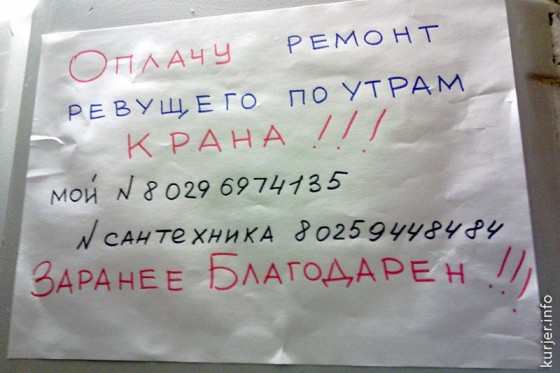 ОПЛАЧУ РЕМОНТ
РЕВУЩЕГО ПО УТРАМ
КРАНА !!!
МОЙ N 8 029 6974135
N САНТЕХНИКА 8 0259448484
ЗАРАНЕЕ БЛАГОДАРЕН !!!
kurjer.info